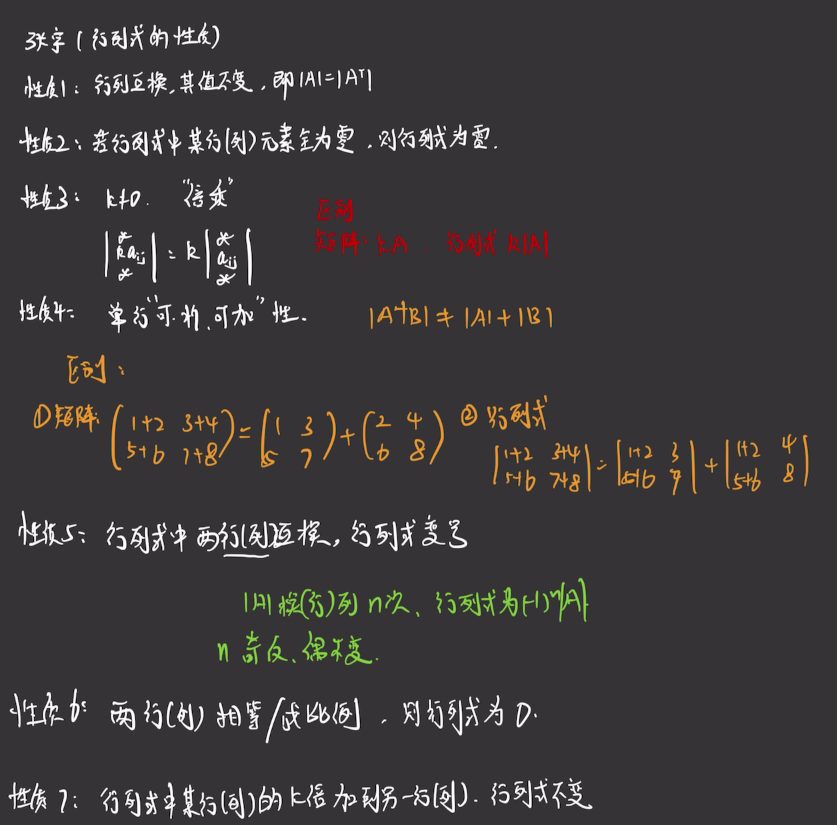 求字(行列式的性质)
性质1：行列互换,其值不变,即|A|=|Aᵀ|
性质2：若行列式中某行(列)元素全为零,则行列式为零.
性质3： k≠0. "倍乘"
区别
矩阵：kA . 行列式 k|A|
|* kaᵢⱼ *| = k|* aᵢⱼ *|
性质4： 单行"可拆、可加"性. |A+B| ≠ |A| + |B|
区别：
①矩阵: (1+2 3+4 5+6 7+8) = (1 3 5 7) + (2 4 6 8) ② 行列式
|1+2 3+4 5+6 7+8| = |1+2 3 5+6 7| + |1+2 4 5+6 8|
性质5：行列式中两行(列)互换,行列式变号
|A|换(行)列 n次、行列式为(-1)ⁿ|A|.
n 奇反、偶不变.
性质6： 两行(列)相等/成比例,则行列式为0.
性质7：行列式中某行(列)的k倍加到另一行(列).行列式不变